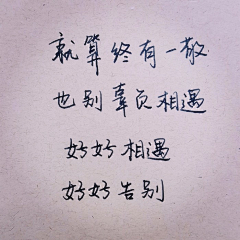 就算终有一散
也别辜负相遇
好好相遇
好好告别